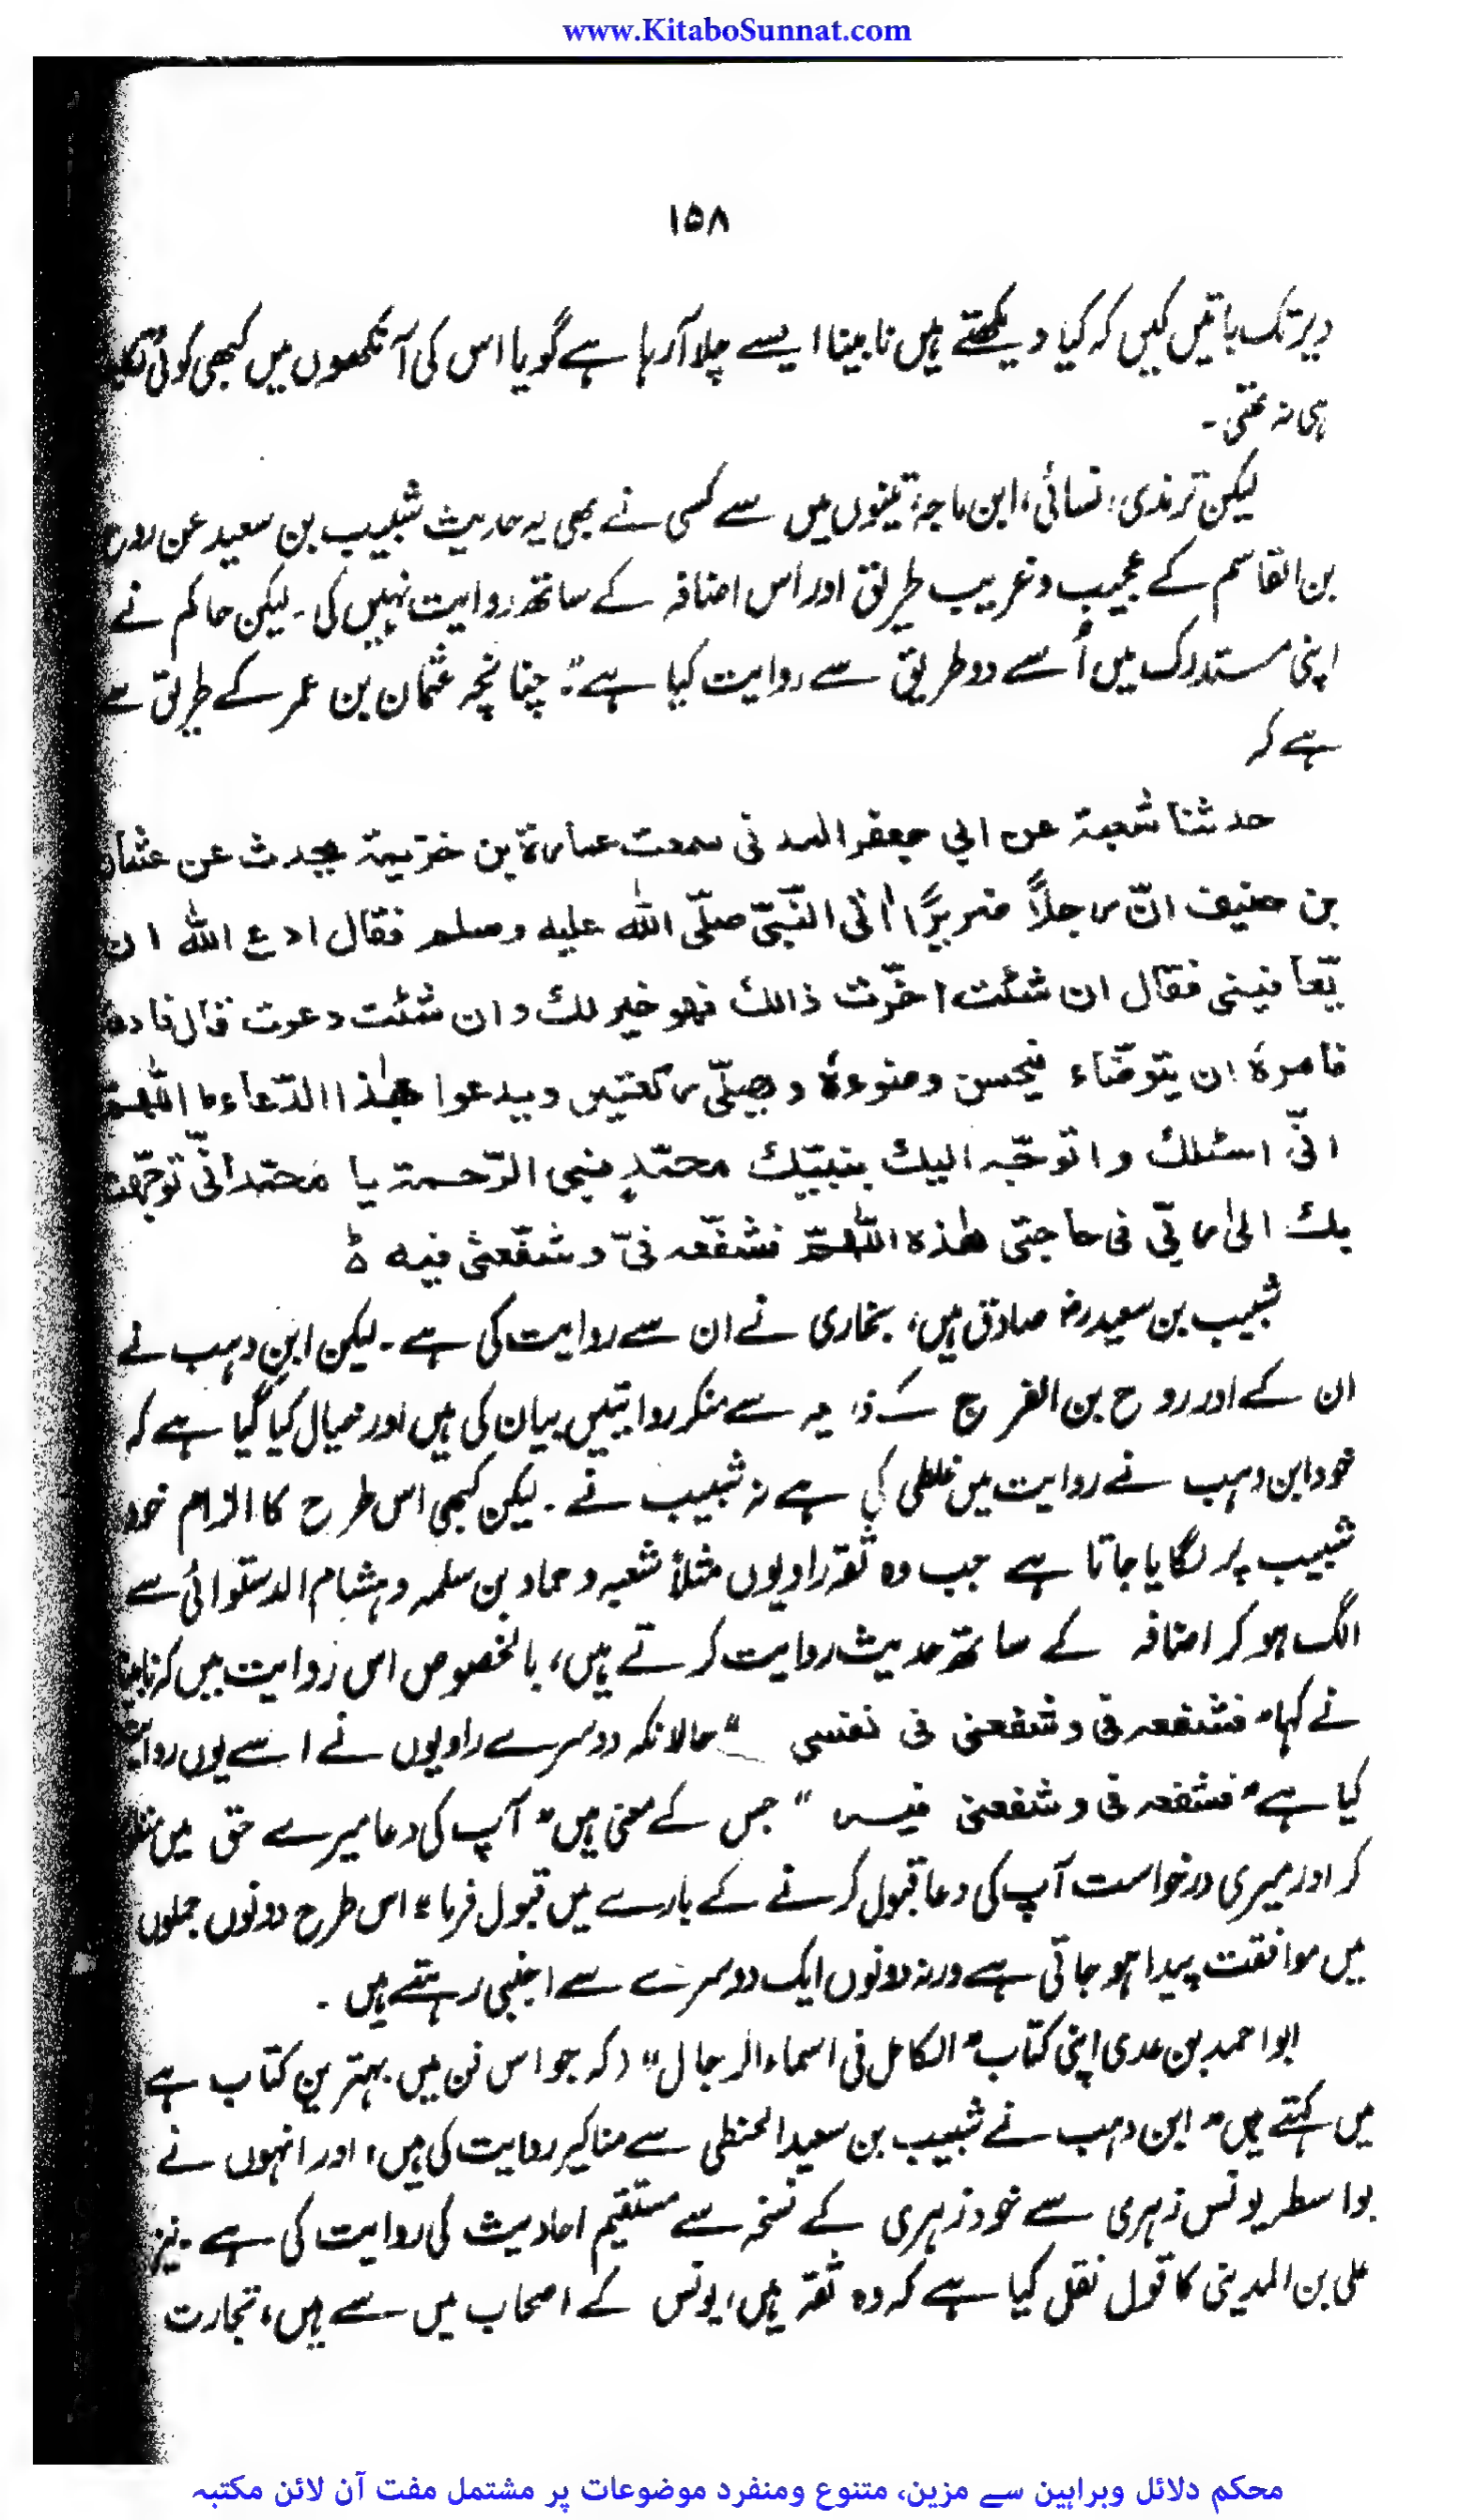 www.KitaboSunnat.com
۱۵۸
دیر تک باتیں کیں کہ کیا دیکھتے ہیں نابینا ایسے چلا آرہا ہے گویا اس کی آنکھوں میں کبھی کوئی
ہی نہ تھی۔
لیکن ترمذی، نسائی، ابن ماجہ تینوں میں سے کسی نے بھی یہ حدیث شبیب بن سعید عن روح
بن القاسم کے عجیب و غریب طریق اور اس اضافہ کے ساتھ روایت نہیں کی۔ لیکن حاکم نے
اپنی مستدرک میں اُسے دو طریق سے روایت کیا ہے: چنانچہ عثمان بن عمر کے طریق سے
ہے کہ
حدثنا شعبة عن ابي جعفر المدنی سمعت عمارة بن خزیمة یحدث عن عثمان
بن حنیف انّ رجلاً ضریرًا اتی النّبیّ صلّی اللّٰه علیه وسلم فقال ادع اللّٰه ان
یّعافینی فقال ان شئت اخّرت ذالك فهو خیر لك وان شئت دعوت قال فادعه
فامرهٗ ان یتوضّاء فیحسن وضوءهٗ و یصلّی رکعتین ویدعوا بهٰذا الدّعاء، اللّٰهمّ
انّی اسئلك واتوجّه الیك بنبیّك محمّدٍ نبی الرّحمة یا محمّد انّی توجّهت
بك الیٰ ربّی فی حاجتی هٰذه اللّٰهمّ فشفّعه فیّ وشفّعنی فیه ؕ
شبیب بن سعید رضہ صادق ہیں، بخاری نے ان سے روایت کی ہے۔ لیکن ابن وہب نے
ان کے اور روح بن الفرج کے ذریعہ سے منکر روایتیں بیان کی ہیں اور خیال کیا گیا ہے کہ
خود ابن وہب نے روایت میں غلطی کی ہے نہ شبیب نے۔ لیکن کبھی اس طرح کا الزام خود
شبیب پر لگایا جاتا ہے جب وہ ثقہ راویوں مثلاً شعبہ و حماد بن سلمہ و ہشام الدستوائی سے
الگ ہو کر اضافہ کے ساتھ حدیث روایت کرتے ہیں، بالخصوص اس روایت میں کہ نابینا
نے کہا "فشفعه فی وشفعنی فی نفسی" حالانکہ دوسرے راویوں نے اسے یوں روایت
کیا ہے "فشفعه فی وشفعنی فیه" جس کے معنی ہیں "آپ کی دعا میرے حق میں
کر اور میری درخواست آپ کی دعا قبول کرنے کے بارے میں قبول فرما" اس طرح دونوں جملوں
میں موافقت پیدا ہو جاتی ہے ورنہ دونوں ایک دوسرے سے اجنبی رہتے ہیں۔
ابو احمد بن عدی اپنی کتاب "الکامل فی اسماء الرجال" (کہ جو اس فن میں بہترین کتاب ہے
میں کہتے ہیں "ابن وہب نے شبیب بن سعید الحنطی سے مناکیر روایت کی ہیں، اور انہوں نے
بواسطہ یونس زہری سے خود زہری کے نسخہ سے مستقیم احادیث کی روایت کی ہے۔ نیز
علی بن المدینی کا قول نقل کیا ہے کہ وہ ثقہ ہیں، یونس کے اصحاب میں سے ہیں، تجارت
محکم دلائل وبراہین سے مزین، متنوع ومنفرد موضوعات پر مشتمل مفت آن لائن مکتبہ